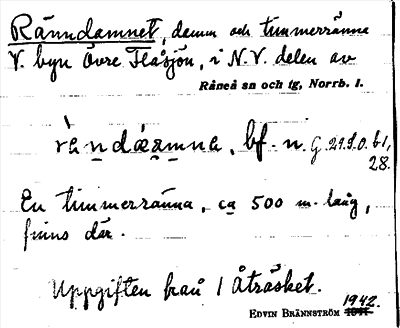 Ränndamnet, damm och timmerränna
V. byn Övre Flåsjön, i N.V. delen av
Råneå sn och tg, Norrb. l.
rän̲dæa̲m̲na, bf. n. G. 29 f. O. b 1,
28.
En timmerränna, ca 500 m. lång,
finns där.
Uppgiften från 1 Åträsket.
EDVIN BRÄNNSTRÖM 1942.